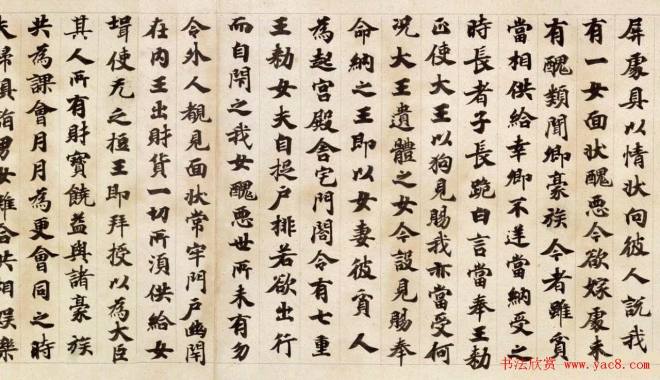 屏處具以情狀向彼人說我
有一女面狀醜惡今欲嫁處未
有醜類聞卿豪族今者雖貧
當相供給幸卿不逆當納受之
時長者子長跪白言當奉王勑
正使大王以狗見賜我亦當受何
況大王遺體之女今設見賜奉
命納之王即以女妻彼貧人
為起宮殿舍宅門閤令有七重
王勑女夫自捉戶排若欲出行
而自閇之我女醜惡世所未有勿
令外人覩見面狀常牢門戶幽閇
在內王出財貨一切所須供給女
壻使无之短王即拜授以為大臣
其人所有財寶饒益與諸豪族
共為課會月月為更會同之時
夫婦俱詣男女雜合共相娛樂
书法欣赏 www.yac8.com